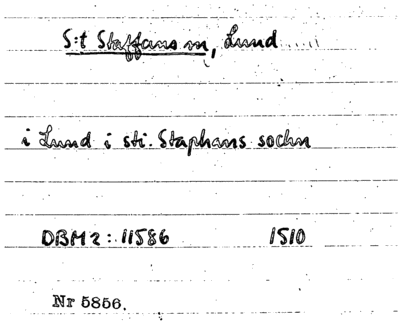 S:t Staffans m, Lund
i Lund i sti. Staphans sochn
DBM 2: 11586 1510
Nr 5856.